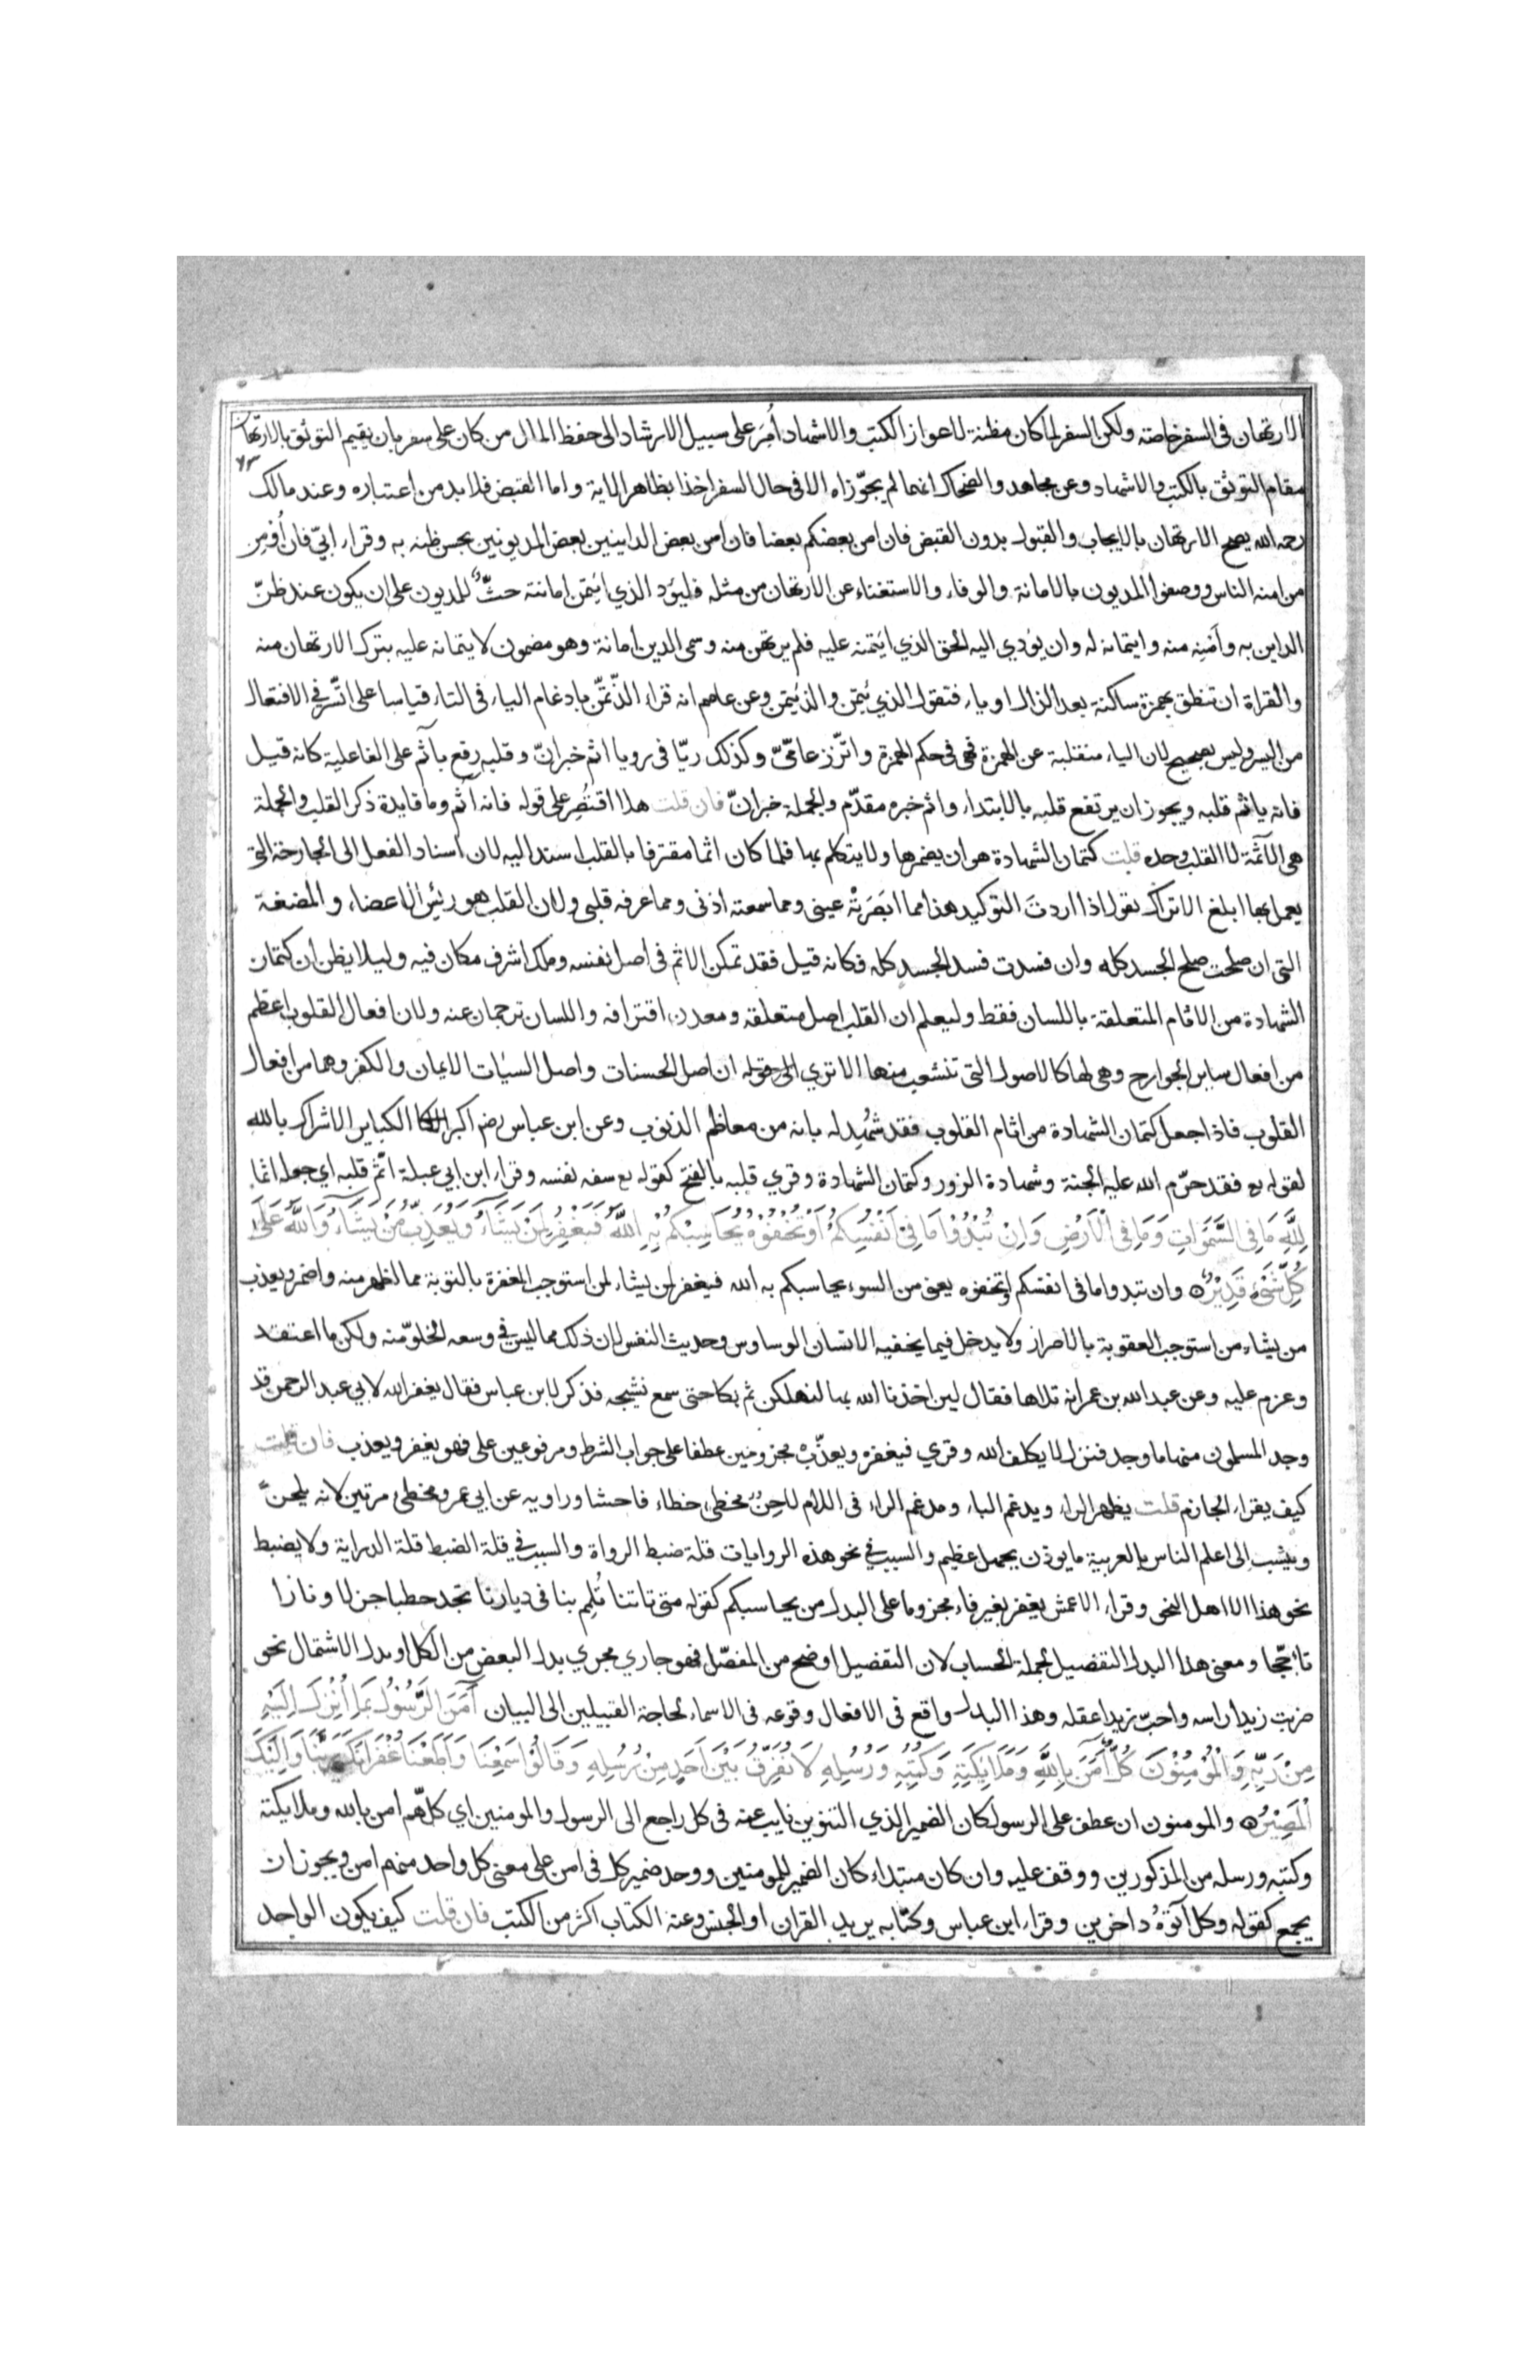 الارتهان فى السفر خاصته ولكن السفر لما كان مظنة لاعواز الكتب والاشهاد أُمِرَ على سبيل الارشاد الى حفظ المال من كان على سفر بان يقيم التوثق بالارتهان
٧٣
مقام التوثق بالكتب والاشهاد وعن مجاهد والضحاك انهما لم يجوّزاه الا فى حال السفر اخذا بظاهر الاية واما القبض فلا بد من اعتباره وعند مالك
رحمه الله يصح الارتهان بالايجاب والقبول بدون القبض فان امن بعضكم بعضا فان امن بعض الداينين بعض المديونين بحسن ظنه به وقراء ابيّ فان أُومِن
من امنه الناس ووصفوا المديون بالامانة والوفاء والاستغناء عن الارتهان من مثله فليؤد الذي ائتمن امانته حثٌّ للمديون على ان يكون عند ظنّ
الداين به وأمنِه منه وايتمانه له وان يؤدي اليه الحق الذي ايتمنه عليه فلم يرتهن منه وسمى الدين أمانة وهو مضمون لايتمانه عليه بترك الارتهان منه
والقراة ان تنطق بهمزة ساكنة بعد الذال او ياء فتقول الذي ئتمن والذيتمن وعن عاصم انه قراء الذّتّمن بادغام الياء فى التاء قياسا على اتّسر في الافتعال
من اليسر وليس بصحيح لان الياء منقلبة عن الهمزة فهى فى حكم الهمزة واتّزر عامّيّ وكذلك ريّا فى رويا اثم خبر انّ وقلبه رفع بآثم على الفاعلية كانه قيل
فانه ياثم قلبه ويجوز ان يرتفع قلبه بالابتداء واثم خبره مقدّم والجملة خبر انّ فان قلت هلا اقتُصِر على قوله فانه آثم وما فايدة ذكر القلب والجملة
هى الآثمة لا القلب وحده قلت كتمان الشهادة هو ان يضمرها ولا يتكلم بها فلما كان اثما مقترفا بالقلب اسند اليه لان اسناد الفعل الى الجارحة التى
يعمل بها ابلغ الا تراك تقول اذا اردتَ التوكيد هذا مما ابْصَرَتْه عينى ومما سمعته اذنى ومما عرفه قلبى ولان القلب هو رئيس الاعضاء والمضغة
التى ان صلحت صلح الجسد كله وان فسدت فسد الجسد كله فكانه قيل فقد تمكن الاثم فى اصل نفسه وملك اشرف مكان فيه وليلا يظن أن كتمان
الشهادة من الاثام المتعلقة باللسان فقط وليعلم ان القلب اصل متعلقه ومعدن اقترافه واللسان ترجمان عنه ولان افعال القلوب اعظم
من افعال ساير الجوارح وهى لها كالاصول التى تنشعب منها الا تري ان اصل الحسنات واصل السيات الايمان والكفر وهما من افعال
القلوب فاذا جعل كتمان الشهادة من اثام القلوب فقد شُهِد له بانه من معاظم الذنوب وعن ابن عباس رضم اكبر الكباير الاشراك بالله
لقوله تع فقد حرّم الله عليه الجنة وشهادة الزور وكتمان الشهادة وقري قلبه بالفتح كقوله تع سفه نفسه وقراء ابن ابي عبلة اثّم قلبه اي جعله اثما
لِلَّهِ مَا فِى السَّمَوَاتِ وَمَا فِى الْاَرْضِ وَاِنْ تُبْدُوْا مَا فِىْ اَنْفُسِكُمْ اَوْ تُخْفُوْهُ يُحَاسِبْكُمْ بِهِ اللَّهُ فَيَغْفِرُ لِمَنْ يَشَاءُ وَيُعَذِّبُ مَنْ يَشَاءُ وَاللَّهُ عَلَى
كُلِّ شَىْءٍ قَدِيْرٌ وان تبدوا ما فى انفسكم او تخفوه يعنى من السوء يحاسبكم به الله فيغفر لمن يشاء لمن استوجب المغفرة بالتوبة مما اظهر منه واضمر ويعذب
من يشاء من استوجب العقوبة بالاصرار ولا يدخل فيما يخفيه الانسان الوساوس وحديث النفس لان ذلك مما ليس في وسعه الخلو منه ولكن ما اعتقد
وعزم عليه وعن عبد الله بن عمر انه تلاها فقال لين اخذنا الله بها لنهلكن ثم بكا حتى سمع نشيجه فذكر لابن عباس فقال يغفر الله لابي عبد الرحمن قد
وجد المسلمون منها ما وجد فنزل لا يكلف الله وقري فيغفرْ ويعذّبْ مجزومين عطفا على جواب الشرط ومرفوعين على فهو يغفر ويعذب فان قلت
كيف يقراء الجازم قلت يظهر الراء ويدغم الباء ومدغم الراء فى اللام لاحِنٌ مخطئ خطاء فاحشا وراويه عن ابي عمرو مخطئ مرتين لانه يلحن
وينسب الى اعلم الناس بالعربية ما يوذن بجهل عظيم والسبب في نحو هذه الروايات قلة ضبط الرواة والسبب في قلة الضبط قلة الدراية ولا يضبط
نحو هذا الا اهل النحو وقراء الاعمش يغفر بغير فاء مجزوما على البدل من يحاسبكم كقوله متى تاتنا تُلمِم بنا فى ديارنا تجد حطبا جزلا ونارا
تاججّا ومعنى هذا البدل التفصيل لجملة الحساب لان التفصيل اوضح من المفصّل فهو جاري مجري بدل البعض من الكل او بدل الاشتمال نحو
ضربت زيدا راسه واحبّ زيدا عقله وهذا البدل واقع فى الافعال وقوعه فى الاسماء لحاجة القبيلين الى البيان آمَنَ الرَّسُوْلُ بِمَا اُنْزِلَ اِلَيْهِ
مِنْ رَبِّهِ وَالْمُؤْمِنُوْنَ كُلٌّ آمَنَ بِاللَّهِ وَمَلَايِكَتِهِ وَكُتُبِهِ وَرُسُلِهِ لَا نُفَرِّقُ بَيْنَ اَحَدٍ مِنْ رُسُلِهِ وَقَالُوْا سَمِعْنَا وَاَطَعْنَا غُفْرَانَكَ رَبَّنَا وَاِلَيْكَ
الْمَصِيْرُ والمومنون ان عطف على الرسول كان الضمير الذي التنوين نايب عنه فى كل راجع الى الرسول والمومنين اي كلهم امن بالله وملايكته
وكتبه ورسله من المذكورين ووقف عليه وان كان مبتداء كان الضمير للمومنين ووحد ضمير كل فى امن على معنى كل واحد منهم امن ويجوز ان
يجمع كقوله وكل اتوْهُ داخرين وقراء ابن عباس وكتابه يريد القران او الجنس وعنه الكتاب اكثر من الكتب فان قلت كيف يكون الواحد